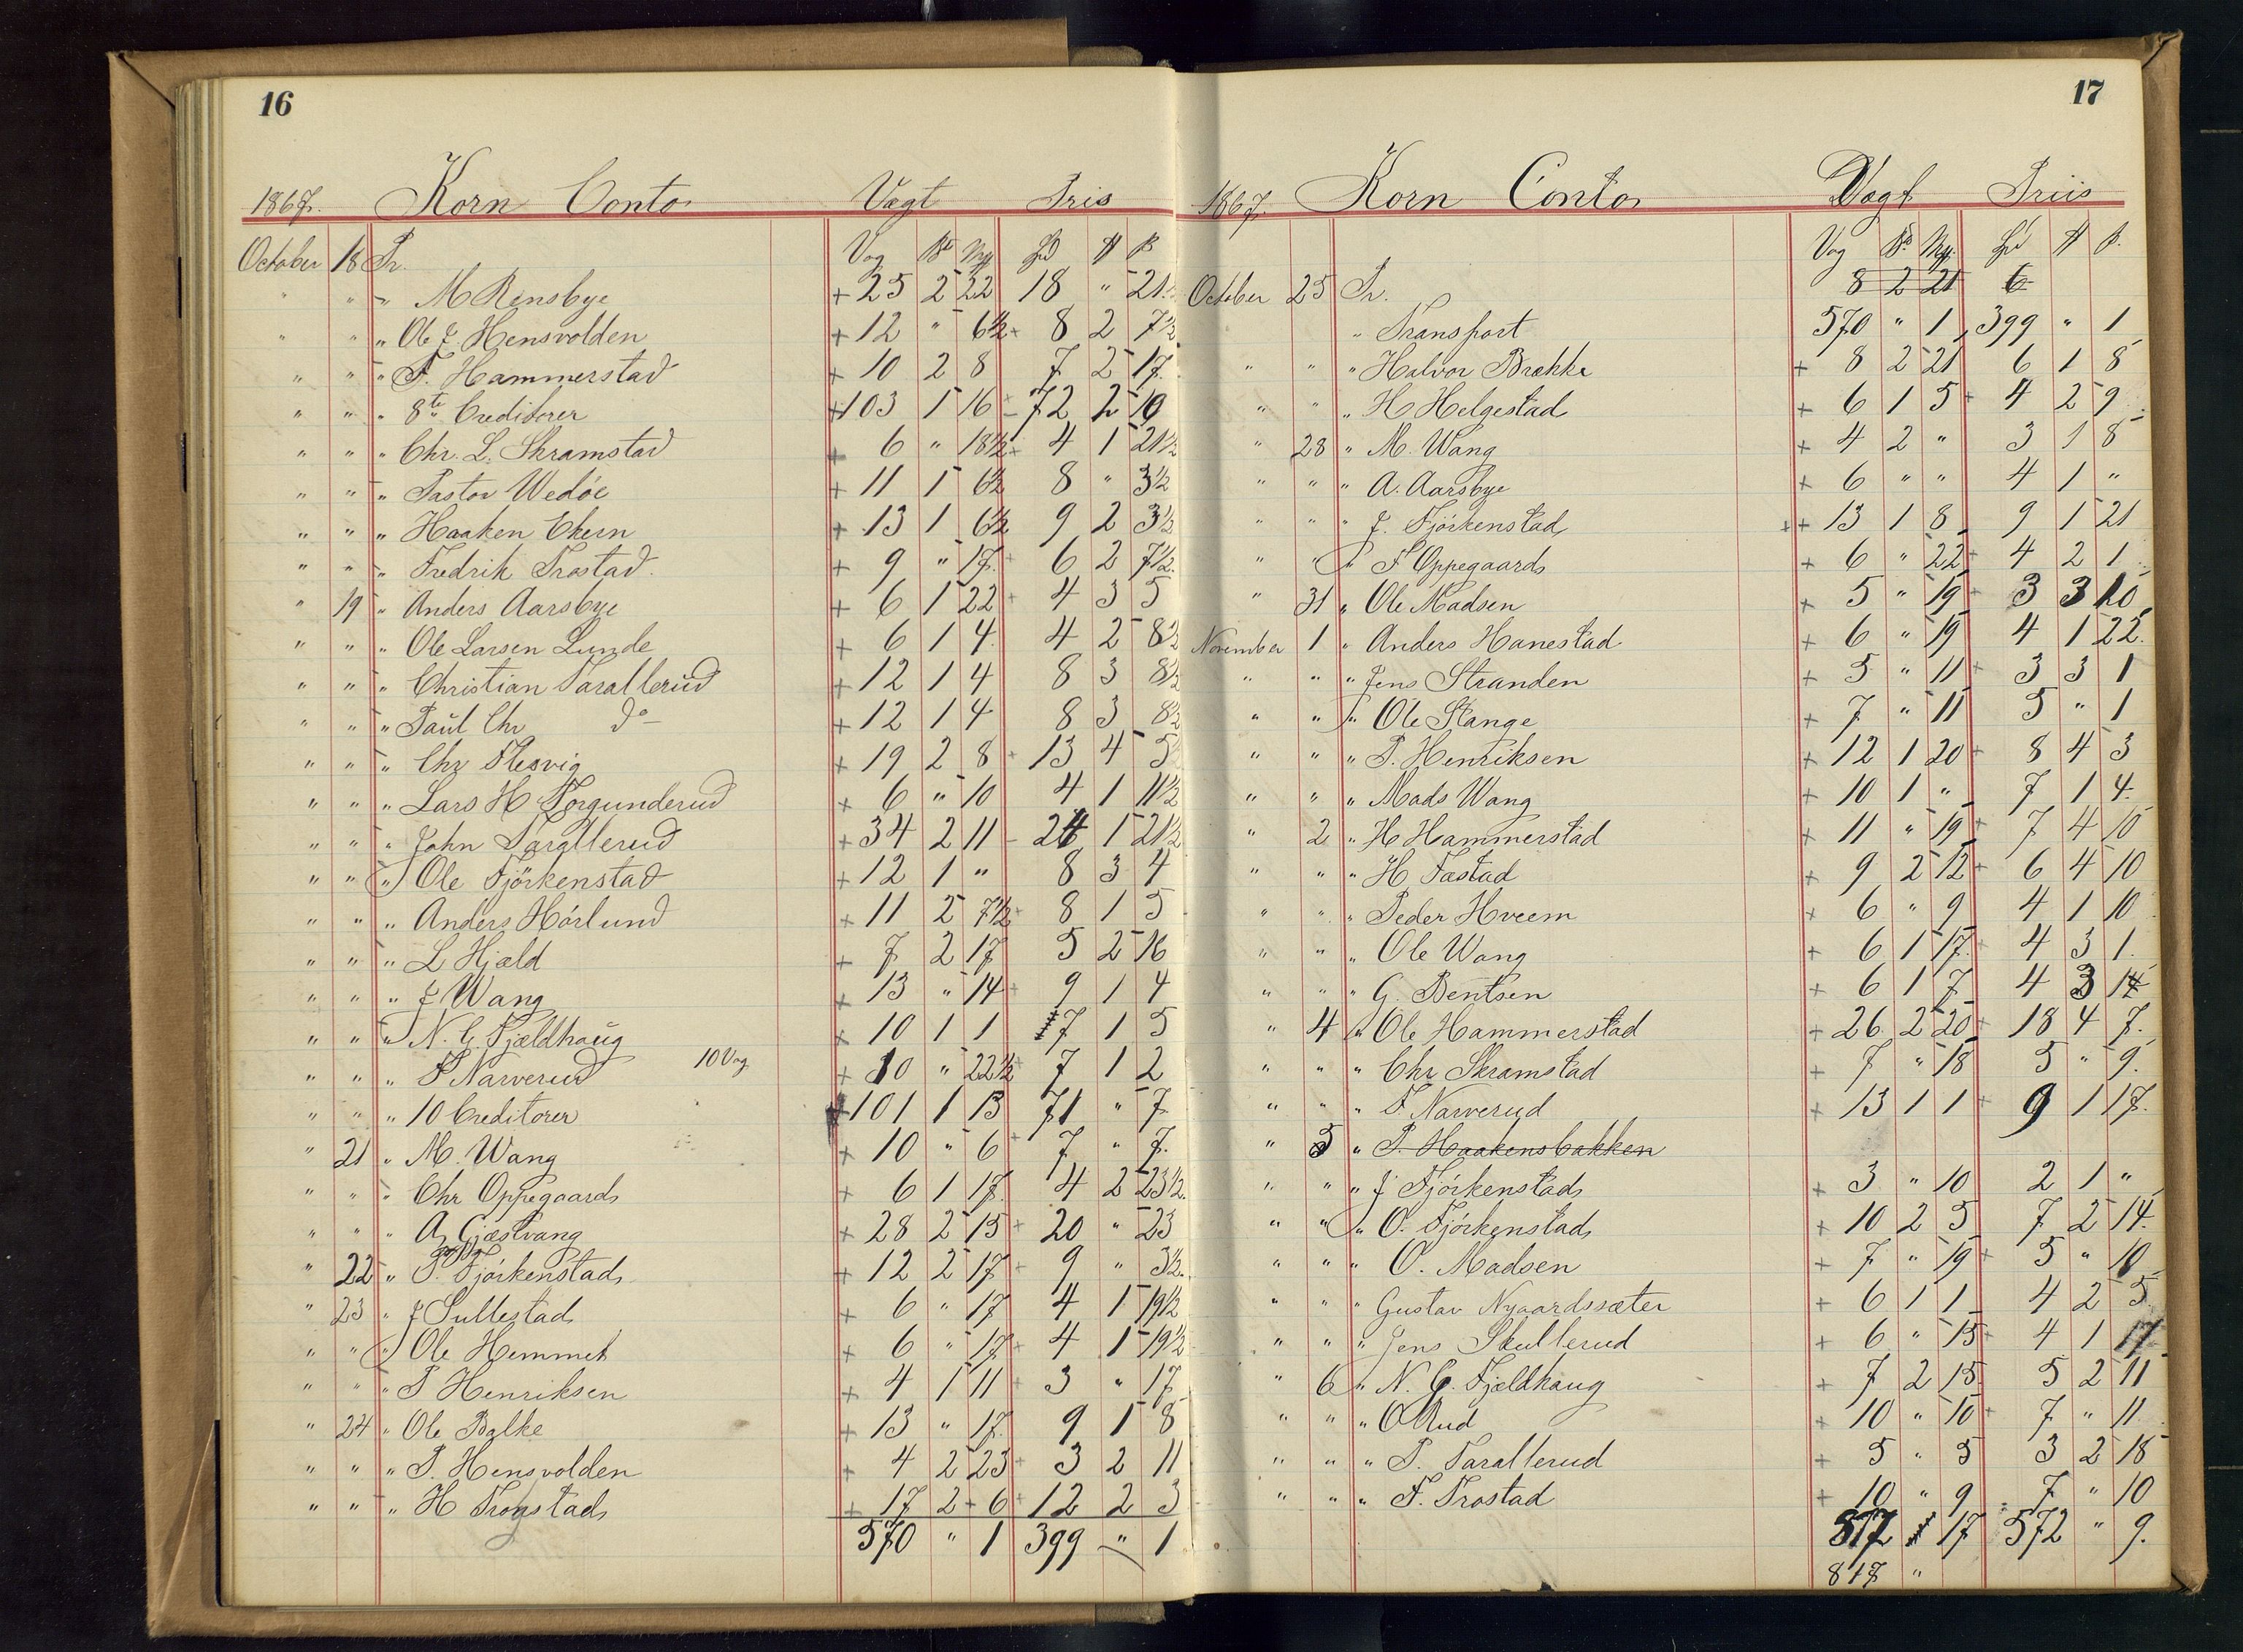 16
1867. Korn Conto Vægt Pris
October 18 Pr. Vog Bd Mk Spd # ß
" " " M Rensbye + 25 2 22 18 " 21
" " " Ole J. Hensvolden + 12 " 6½ + 8 2 7½
" " " F. Hammerstad + 10 2 8 7 2 17
" " " 8te Creditorer + 103 1 16 72 2 10
" " " Chr. L. Skramstad + 6 " 18½ + 4 1 21½
" " " Pastor Wedöe + 11 1 6½ 8 " 3½
" " " Haaken Ekern + 13 1 6½ 9 2 3½
" " " Fredrik Trostad. + 9 " 17 + 6 2 7½
" 19 " Anders Aarsbye + 6 1 22 + 4 3 5
" " " Ole Larsen Lunde + 6 1 4 4 2 8½
" " " Christian Parallerud + 12 1 4 8 3 8½
" " " Paul Chr do + 12 1 4 8 3 8½
" " " Chr Flesvig + 19 2 8 + 13 4 5
" " " Lars H Torgunderud + 6 " 10 4 1 11½
" " " John Parallerud + 34 2 11 24 1 21½
" " " Ole Fjörkenstad + 12 1 " 8 3 4
" " " Anders Hörlund + 11 2 7½ + 8 1 5
" " " L Hjeld + 7 2 17 5 2 16
" " " J Wang + 13 " 14 + 9 1 4
" " " N. C. Fjeldhaug + 10 1 1 7 1 5
" " " F Narverud 10 Vog + 10 " 22½ + 7 1 2
" " " 10 Creditorer + 101 1 13 71 " 7
" 21 " M. Wang + 10 " 6 + 7 " 7
" " " Chr Oppegaard + 6 1 17 4 2 23½
" " " A Gjæstvang + 28 2 15 + 20 " 23
" 22 " P. Fjörkenstad + 12 2 17 + 9 " 3½
" 23 " J Sullestad + 6 " 17 4 1 19½
" " " Ole Hemmet + 6 " 17 + 4 1 19½
" " " P Henriksen + 4 1 11 + 3 " 17
" 24 " Ole Balke + 13 " 17 9 1 8
" " " P. Hensvolden + 4 2 23 + 3 2 11
" " " H Trogstad + 17 2 6 + 12 2 3
570 " 1 399 " 1
17
1867. Korn Conto Vægt Priis
Vog Bd Mk Spd # ß
8 2 21 6
October 25 Pr.
" Transport 570 " 1 399 " 1
" " " Halvor Brekke + 8 2 21 6 1 8
" " " H Helgestad + 6 1 5 + 4 2 9
" 28 " M. Wang + 4 2 " 3 1 8
" " " A. Aarsbye + 6 " " 4 1 "
" " " J. Fjörkenstad + 13 1 8 9 1 21
" " " F Oppegaard + 6 " 22 + 4 2 1
" 31 " Ole Madsen + 5 " 19 + 3 3 10
November 1 " Anders Hanestad + 6 " 19 4 1 22
" " " Jens Stranden + 5 " 11 + 3 3 1
" " " Ole Stange + 7 " 11 5 " 1
" " " P. Henriksen + 12 1 20 + 8 4 3
" " " Mads Wang + 10 1 " 7 1 4
" 2 " H Hammerstad + 11 " 19 + 7 4 10
" " " H Fæstad + 9 2 12 + 6 4 10
" " " Peder Hveem + 6 " 9 4 1 10
" " " Ole Wang + 6 1 17 + 4 3 1
" " " G. Bentsen + 6 1 7 4 3 14
" 4 " Ole Hammerstad + 26 2 20 + 18 4 7
" " " Chr Skramstad + 7 " 18 5 " 9
" " " F Narverud + 13 1 1 + 9 1 17
" 5 " P. Haakensbakken
" " " J Fjörkenstad + 3 " 10 2 1 "
" " " O. Fjörkenstad + 10 2 5 7 2 14
" " " O. Madsen + 7 " 19 + 5 " 10
" " " Gustav Nygaardssæter + 6 1 1 4 2 5
" " " Jens Skullerud + 6 " 15 + 4 1 17
" 6 " N. C. Fjeldhaug + 7 2 15 5 2 11
" " " O Rud + 10 " 10 + 7 " 11
" " " P. Parallerud + 5 " 5 3 2 18
" " " F. Trostad + 10 " 9 7 " 10
817 17 572 " 9
817 "